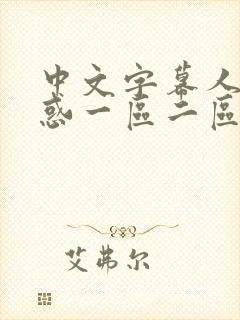 中文字幕人
惑一區二區
艾弗尔